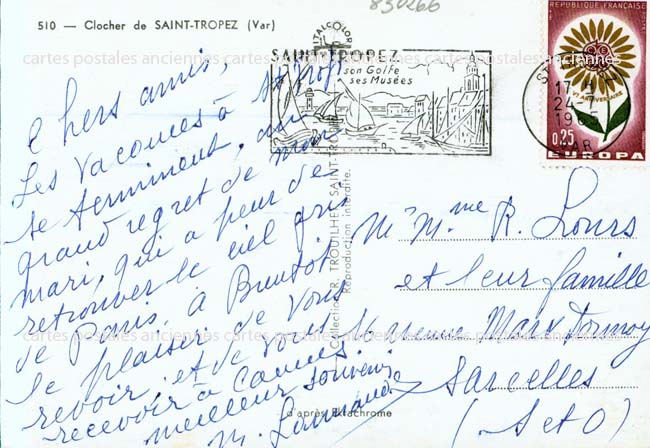 830266
510 — Clocher de SAINT-TROPEZ (Var)
STALCOLOR
SAINT-TROPEZ
son Golfe
ses Musées
REPUBLIQUE FRANÇAISE
VE ANNIVERSAIRE
CEPT
17 H
24-7
1965
VAR
0,25
EUROPA
cartes postales anciennes cartes postales anciennes cartes postales anciennes
Chers amis,
Les vacances à St Trop.
se terminent, au
grand regret de mon
mari, qui a peur de
retrouver le ciel gris
de Paris. à Bientôt
le plaisir de vous
revoir, et de vous
recevoir à Cannes
meilleur souvenir
Collection R. TROUILHET SAINT-TROPEZ
Reproduction interdite.
d'après Ektachrome
Mr Mme R. Lours
et leur famille
avenue Marx Dormoy
Sarcelles
(S et O)